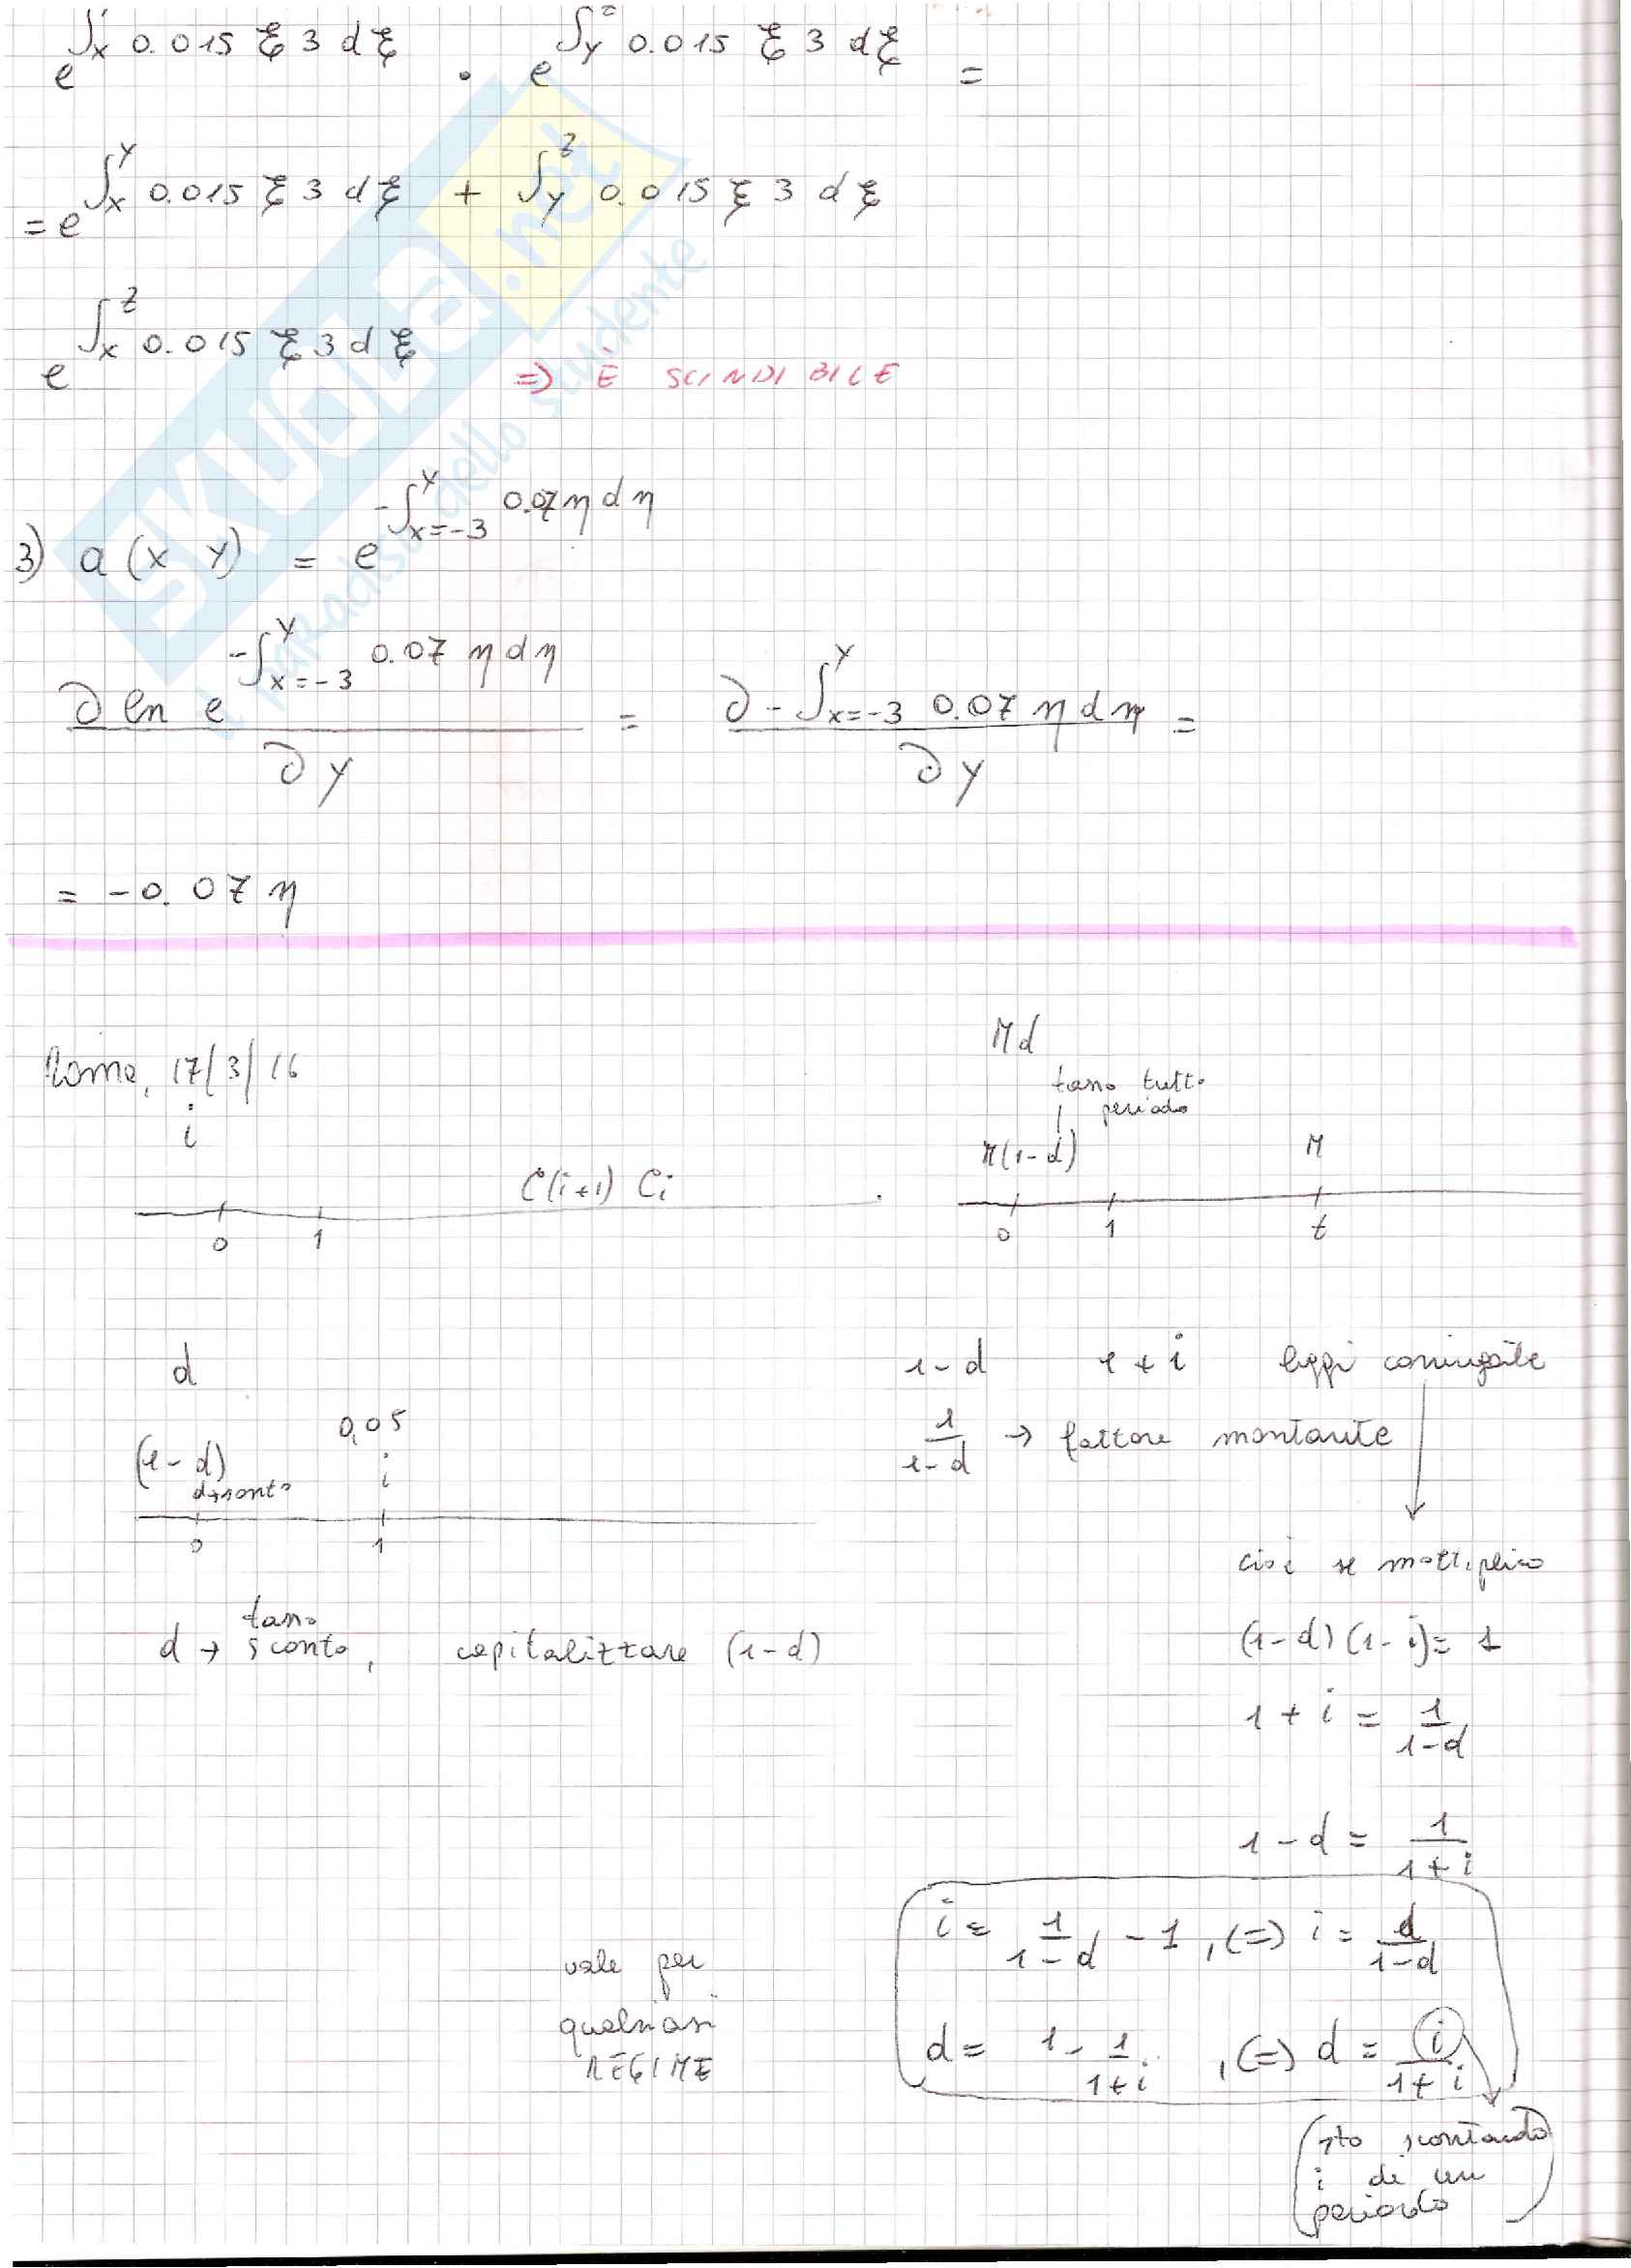 e^∫x 0.015 ξ 3 dξ · e^∫y^z 0.015 ξ 3 dξ =
= e^∫x^y 0.015 ξ 3 dξ + ∫y^z 0.015 ξ 3 dξ
e^∫x^z 0.015 ξ 3 dξ
=> È SCINDIBILE
3) a (x y) = e^-∫x=-3^y 0.07 η dη
∂ ln e^-∫x=-3^y 0.07 η dη / ∂y = ∂ - ∫x=-3^y 0.07 η dη / ∂y =
= -0.07 η
Roma, 17/3/16
i
C(i+1) Ci
0 1
Md
tasso tutto
periodo
M(1-d) M
0 1 t
d
0,05
(1-d) i
0 1
d → tasso
sconto, capitalizzare (1-d)
1-d 1+i leggi coniugate
1/1-d → fattore montante
cioè se moltiplico
(1-d)(1-i)=1
1+i = 1/1-d
1-d = 1/1+i
i = 1/1-d - 1, (=) i = d/1-d
d = 1 - 1/1+i, (=) d = i/1+i
vale per
qualsiasi
REGIME
(sto scontando
i di un
periodo)
SKUOLA.net
il paradiso dello studente